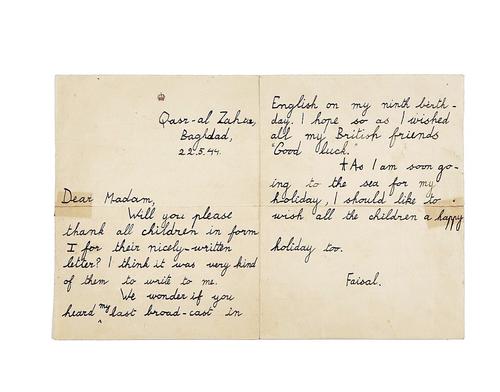 Qasr-al Zahur,
Baghdad,
22.5.44.
Dear Madam,
Will you please
thank all children in form
I for their nicely-written
letter? I think it was very kind
of them to write to me.
We wonder if you
heard my last broad-cast in
English on my ninth birth-
day. I hope so as I wished
all my British friends
"Good luck."
+As I am soon go-
ing to the sea for my
holiday, I should like to
wish all the children a happy
holiday too.
Faisal.